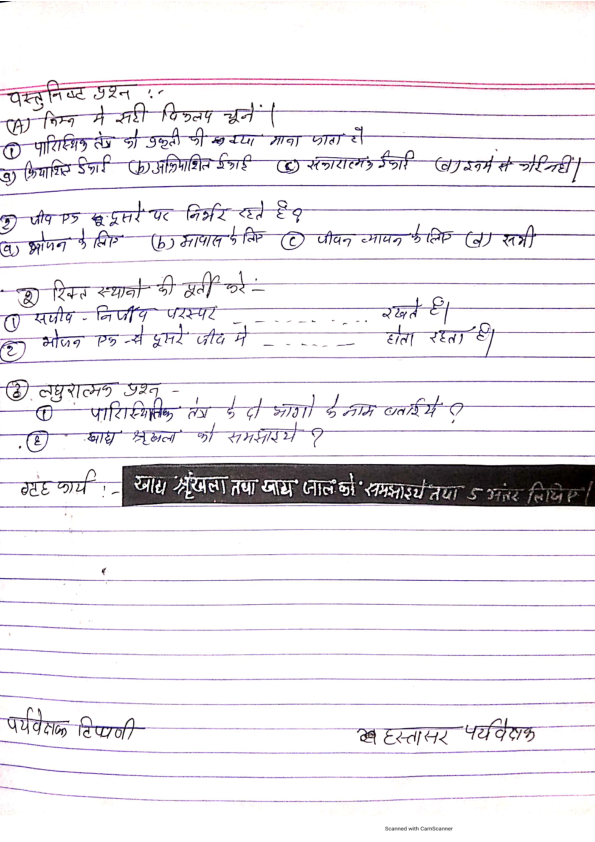 वस्तुनिष्ट प्रश्न :-
(A) निम्न मे सही विकल्प चूनें |
① पारिस्थिक तंत्र को प्रकृती की क्या माना जाता है
(a) क्रियाशिल ईकाई (b) अक्रियाशिल ईकाई (c) संकारात्मक ईकाई (d) इनमें से कोई नहीं |
② जीव एक दूसरे पर निर्भर रहते हैं ?
(a) भोजन के लिए (b) आवास के लिए (c) जीवन यापन के लिए (d) सभी
② रिक्त स्थानो की पूर्ती करे :-
① सजीव - निर्जीव परस्पर _ _ _ _ _ _ रखते हैं|
② भोजन एक से दूसरे जीव मे _ _ _ _ _ होता रहता है|
③ लघुरात्मक प्रश्न -
① पारिस्थितिक तंत्र के दो भागो के नाम बताईये ?
② खाद्य श्रृंखला को समझाइये ?
ग्रह कार्य :- खाद्य श्रृंखला तथा खाद्य जाल को समझाइये तथा 5 अंतर लिखिए |
पर्यवेक्षक टिप्पणी
हस्तासर पर्यवेक्षक
Scanned with CamScanner